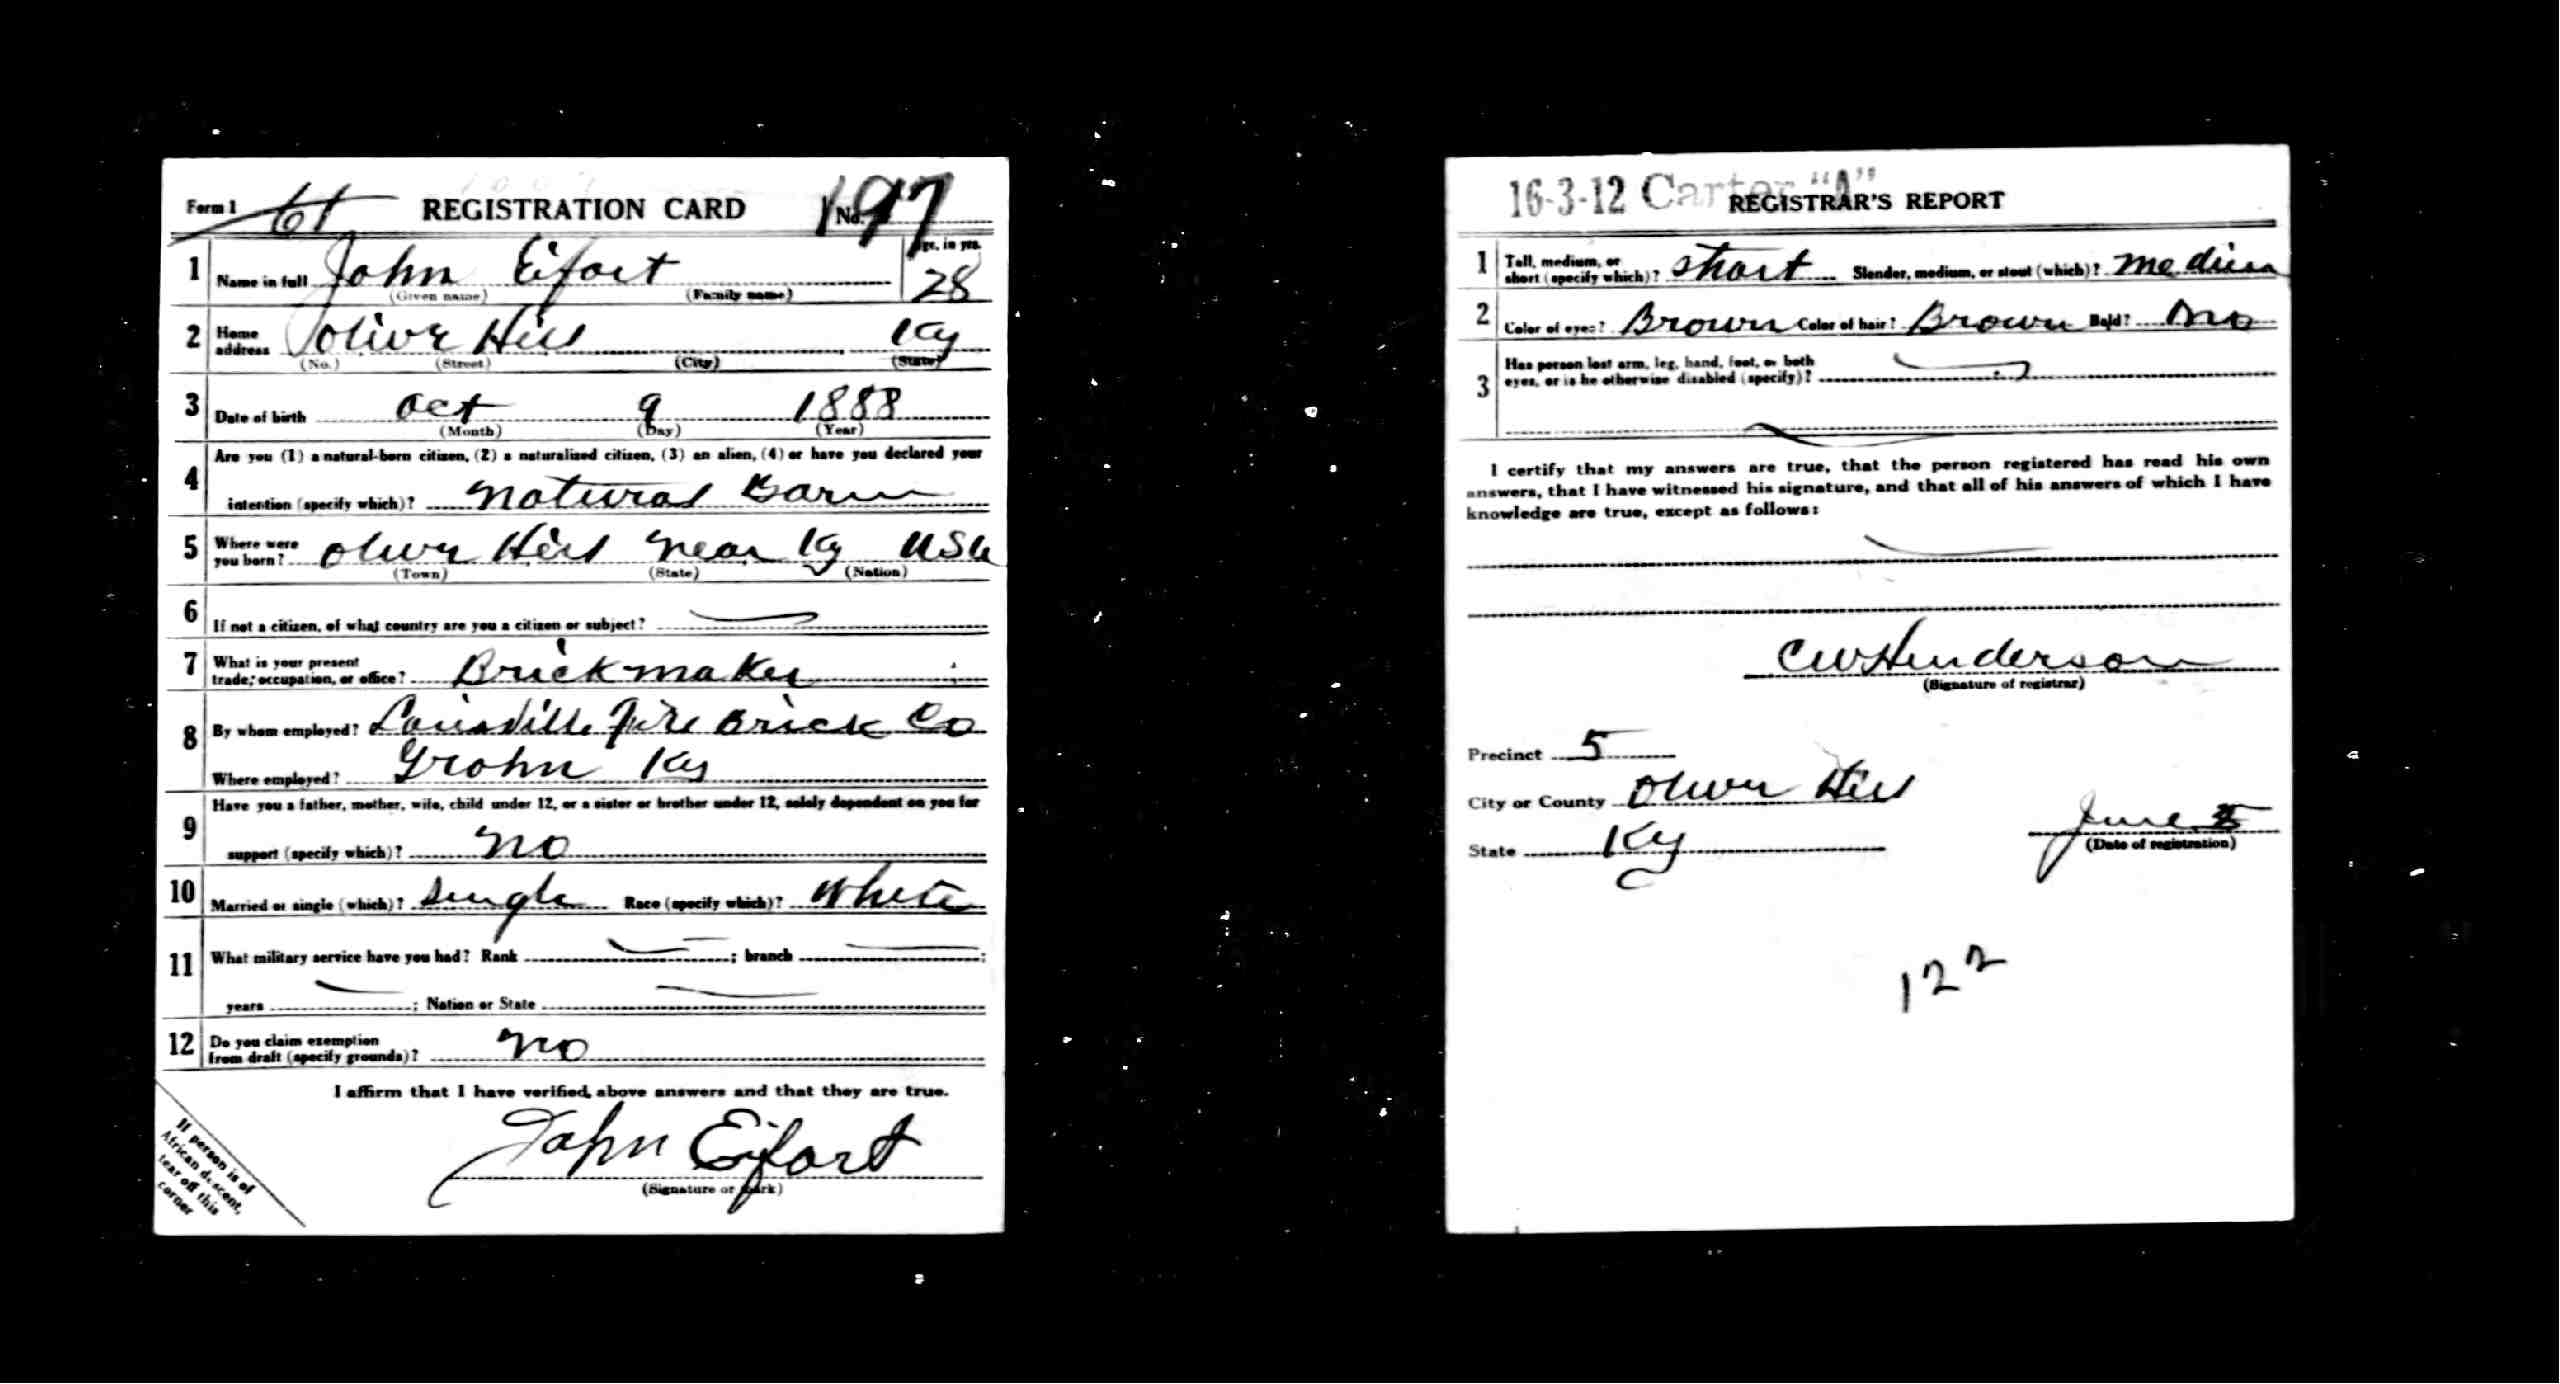 Form 1 61 REGISTRATION CARD No. 197
1 Name in full John Eifort Age, in yrs. 28
(Given name) (Family name)
2 Home address Olive Hill Ky
(No.) (Street) (City) (State)
3 Date of birth Oct 9 1888
(Month) (Day) (Year)
4 Are you (1) a natural-born citizen, (2) a naturalized citizen, (3) an alien, (4) or have you declared your
intention (specify which)? Natural Born
5 Where were you born? Olive Hill near Ky USA
(Town) (State) (Nation)
6 If not a citizen, of what country are you a citizen or subject?
7 What is your present trade, occupation, or office? Brickmaker
8 By whom employed? Louisville Fire Brick Co
Where employed? Grahn Ky
9 Have you a father, mother, wife, child under 12, or a sister or brother under 12, solely dependent on you for
support (specify which)? No
10 Married or single (which)? Single Race (specify which)? White
11 What military service have you had? Rank ; branch ;
years ; Nation or State
12 Do you claim exemption from draft (specify grounds)? No
I affirm that I have verified above answers and that they are true.
John Eifort
(Signature or mark)
If person is of
African descent,
tear off this
corner
16-3-12 Carter "A"
REGISTRAR'S REPORT
1 Tall, medium, or short (specify which)? Short Slender, medium, or stout (which)? Medium
2 Color of eyes? Brown Color of hair? Brown Bald? No
3 Has person lost arm, leg, hand, foot, or both
eyes, or is he otherwise disabled (specify)?
I certify that my answers are true, that the person registered has read his own
answers, that I have witnessed his signature, and that all of his answers of which I have
knowledge are true, except as follows:
CW Henderson
(Signature of registrar)
Precinct 5
City or County Olive Hill
State Ky
June 5
(Date of registration)
122